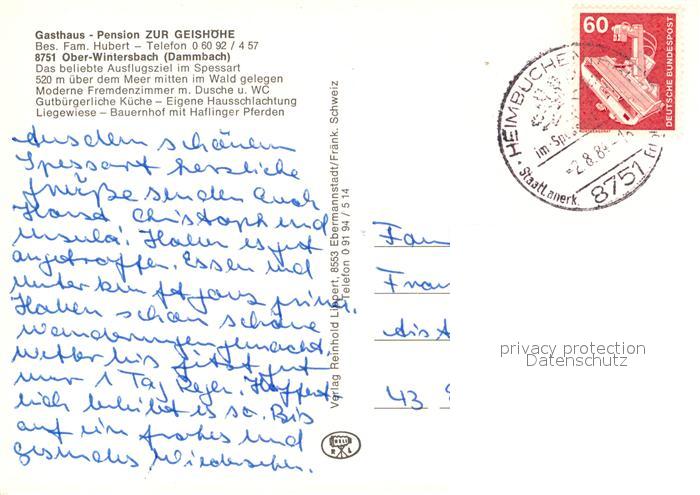 Gasthaus - Pension ZUR GEISHÖHE
Bes. Fam. Hubert – Telefon 0 60 92 / 4 57
8751 Ober-Wintersbach (Dammbach)
Das beliebte Ausflugsziel im Spessart
520 m über dem Meer mitten im Wald gelegen
Moderne Fremdenzimmer m. Dusche u. WC
Gutbürgerliche Küche – Eigene Hausschlachtung
Liegewiese – Bauernhof mit Haflinger Pferden
Aus dem schönen
Spessart herzliche
Grüße senden Euch
Horst Christoph und
Ursula. Haben es gut
angetroffen. Essen und
Unterkunft ganz prima.
Haben schon schöne
Wanderungen gemacht.
Wetter bis jetzt gut
nur 1 Tag Regen. Hoffent
lich bleibt es so. Bis
auf ein frohes und
gesundes Wiedersehen.
Verlag Reinhold Lippert, 8553 Ebermannstadt/Fränk. Schweiz
Telefon 0 91 94 / 5 14
60
DEUTSCHE BUNDESPOST
HEIMBUCHEN
im Spess
-2.8.8
Staatl. anerk.
8751
Fam
Fran
43
privacy protection
Datenschutz